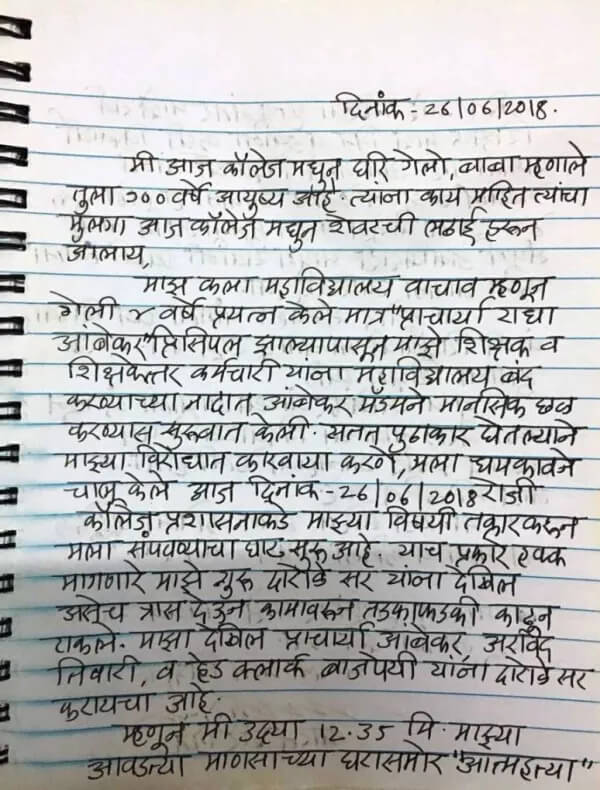 दिनांक : 26/06/2018.
मी आज कॉलेज मधुन घरि गेलो, बाबा म्हणाले
तुला १०० वर्षे आयुष्य आहे. त्यांना काय माहित त्यांचा
मुलगा आज कॉलेज मधुन शेवटची लढाई हरून
आलाय,
माझं कला महाविद्यालय वाचावं म्हणून
गेली ४ वर्षे प्रयत्न केले मात्र "प्राचार्या राधा
आंबेकर" प्रिंसिपल झाल्यापासून माझे शिक्षक व
शिक्षकेत्तर कर्मचारी यांना महाविद्यालय बंद
करण्याच्या नादात आंबेकर मॅडमने मानसिक छळ
करण्यास सुरूवात केली. सतत पुढाकार घेतल्याने
माझ्या विरोधात कारवाया करणे, मला धमकावने
चालू केले आज दिनांक - 26/06/2018 रोजी
कॉलेज प्रशासनाकडे माझ्या विषयी तक्रार करून
मला संपवण्याचा घाट सुरू आहे. याच प्रकारे हक्क
मागणारे माझे गुरू दारोळे सर यांना देखिल
असेच त्रास देऊन कामावरून तडकाफडकी काढून
टाकले. माझा देखिल प्राचार्या आंबेकर, अरविंद
तिवारी, व हेड क्लार्क बाजपेयी यांना दारोळे सर
करायचा आहे.
म्हणून मी उद्या 12.35 मि. माझ्या
आवडत्या माणसाच्या घरासमोर "आत्महत्या"